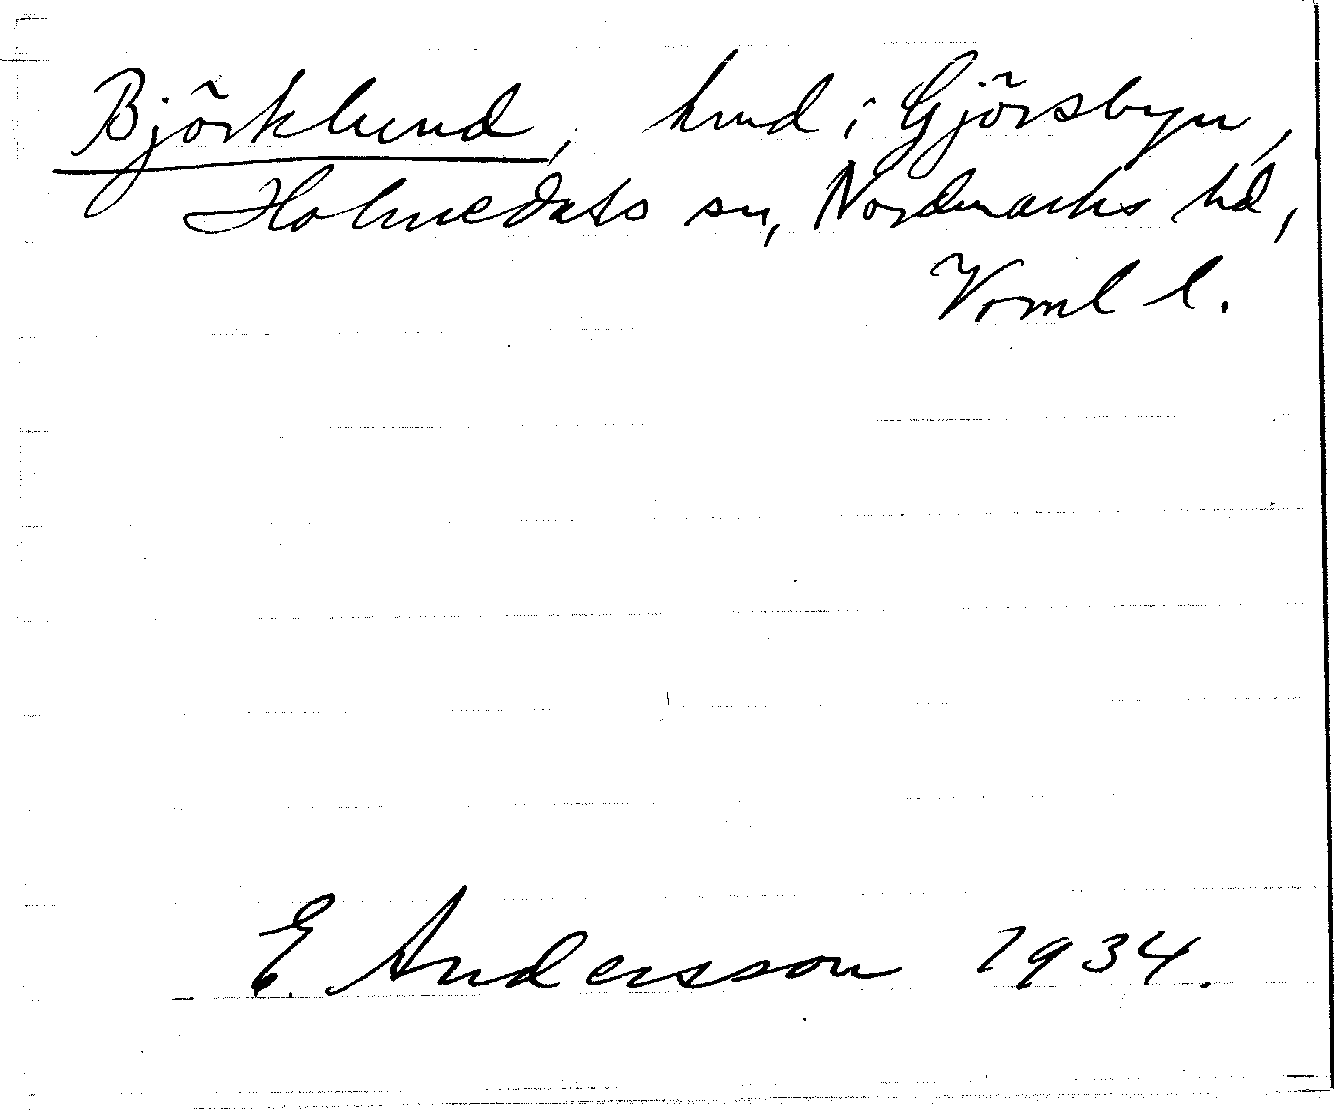 Björklund, hmd i Gjörsbyn,
Holmedals sn, Nordmarks hd,
Vrml l.
E. Andersson 1934.